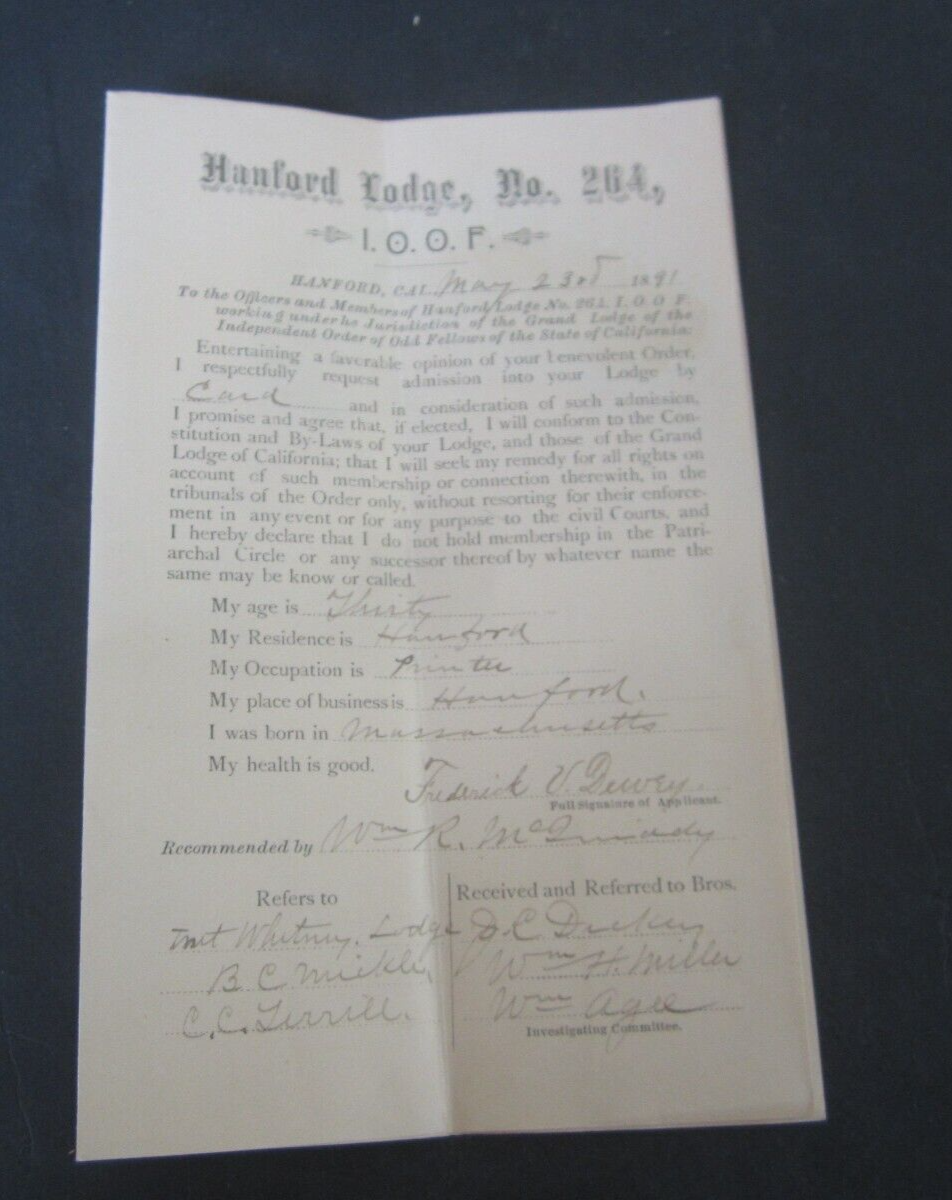 Hanford Lodge, No. 264,
I. O. O. F.
HANFORD, CAL. May 23rd 1891
To the Officers and Members of Hanford Lodge No. 264, I. O. O F.
working under he Jurisdiction of the Grand Lodge of the
Independent Order of Odd Fellows of the State of California:
Entertaining a favorable opinion of your benevolent Order,
I respectfully request admission into your Lodge by
Card and in consideration of such admission,
I promise and agree that, if elected, I will conform to the Con-
stitution and By-Laws of your Lodge, and those of the Grand
Lodge of California; that I will seek my remedy for all rights on
account of such membership or connection therewith, in the
tribunals of the Order only, without resorting for their enforce-
ment in any event or for any purpose to the civil Courts, and
I hereby declare that I do not hold membership in the Patri-
archal Circle or any successor thereof by whatever name the
same may be know or called.
My age is Thirty
My Residence is Hanford
My Occupation is Printer
My place of business is Hanford.
I was born in Massachusetts
My health is good.
Frederick V. Dewey.
Full Signature of Applicant.
Recommended by Wm R.
Refers to
Mt Whitney Lodge
B C Mickle,
C. C. Terrill.
Received and Referred to Bros.
J. C. Dickey
Wm H. Miller
Wm Agee
Investigating Committee.